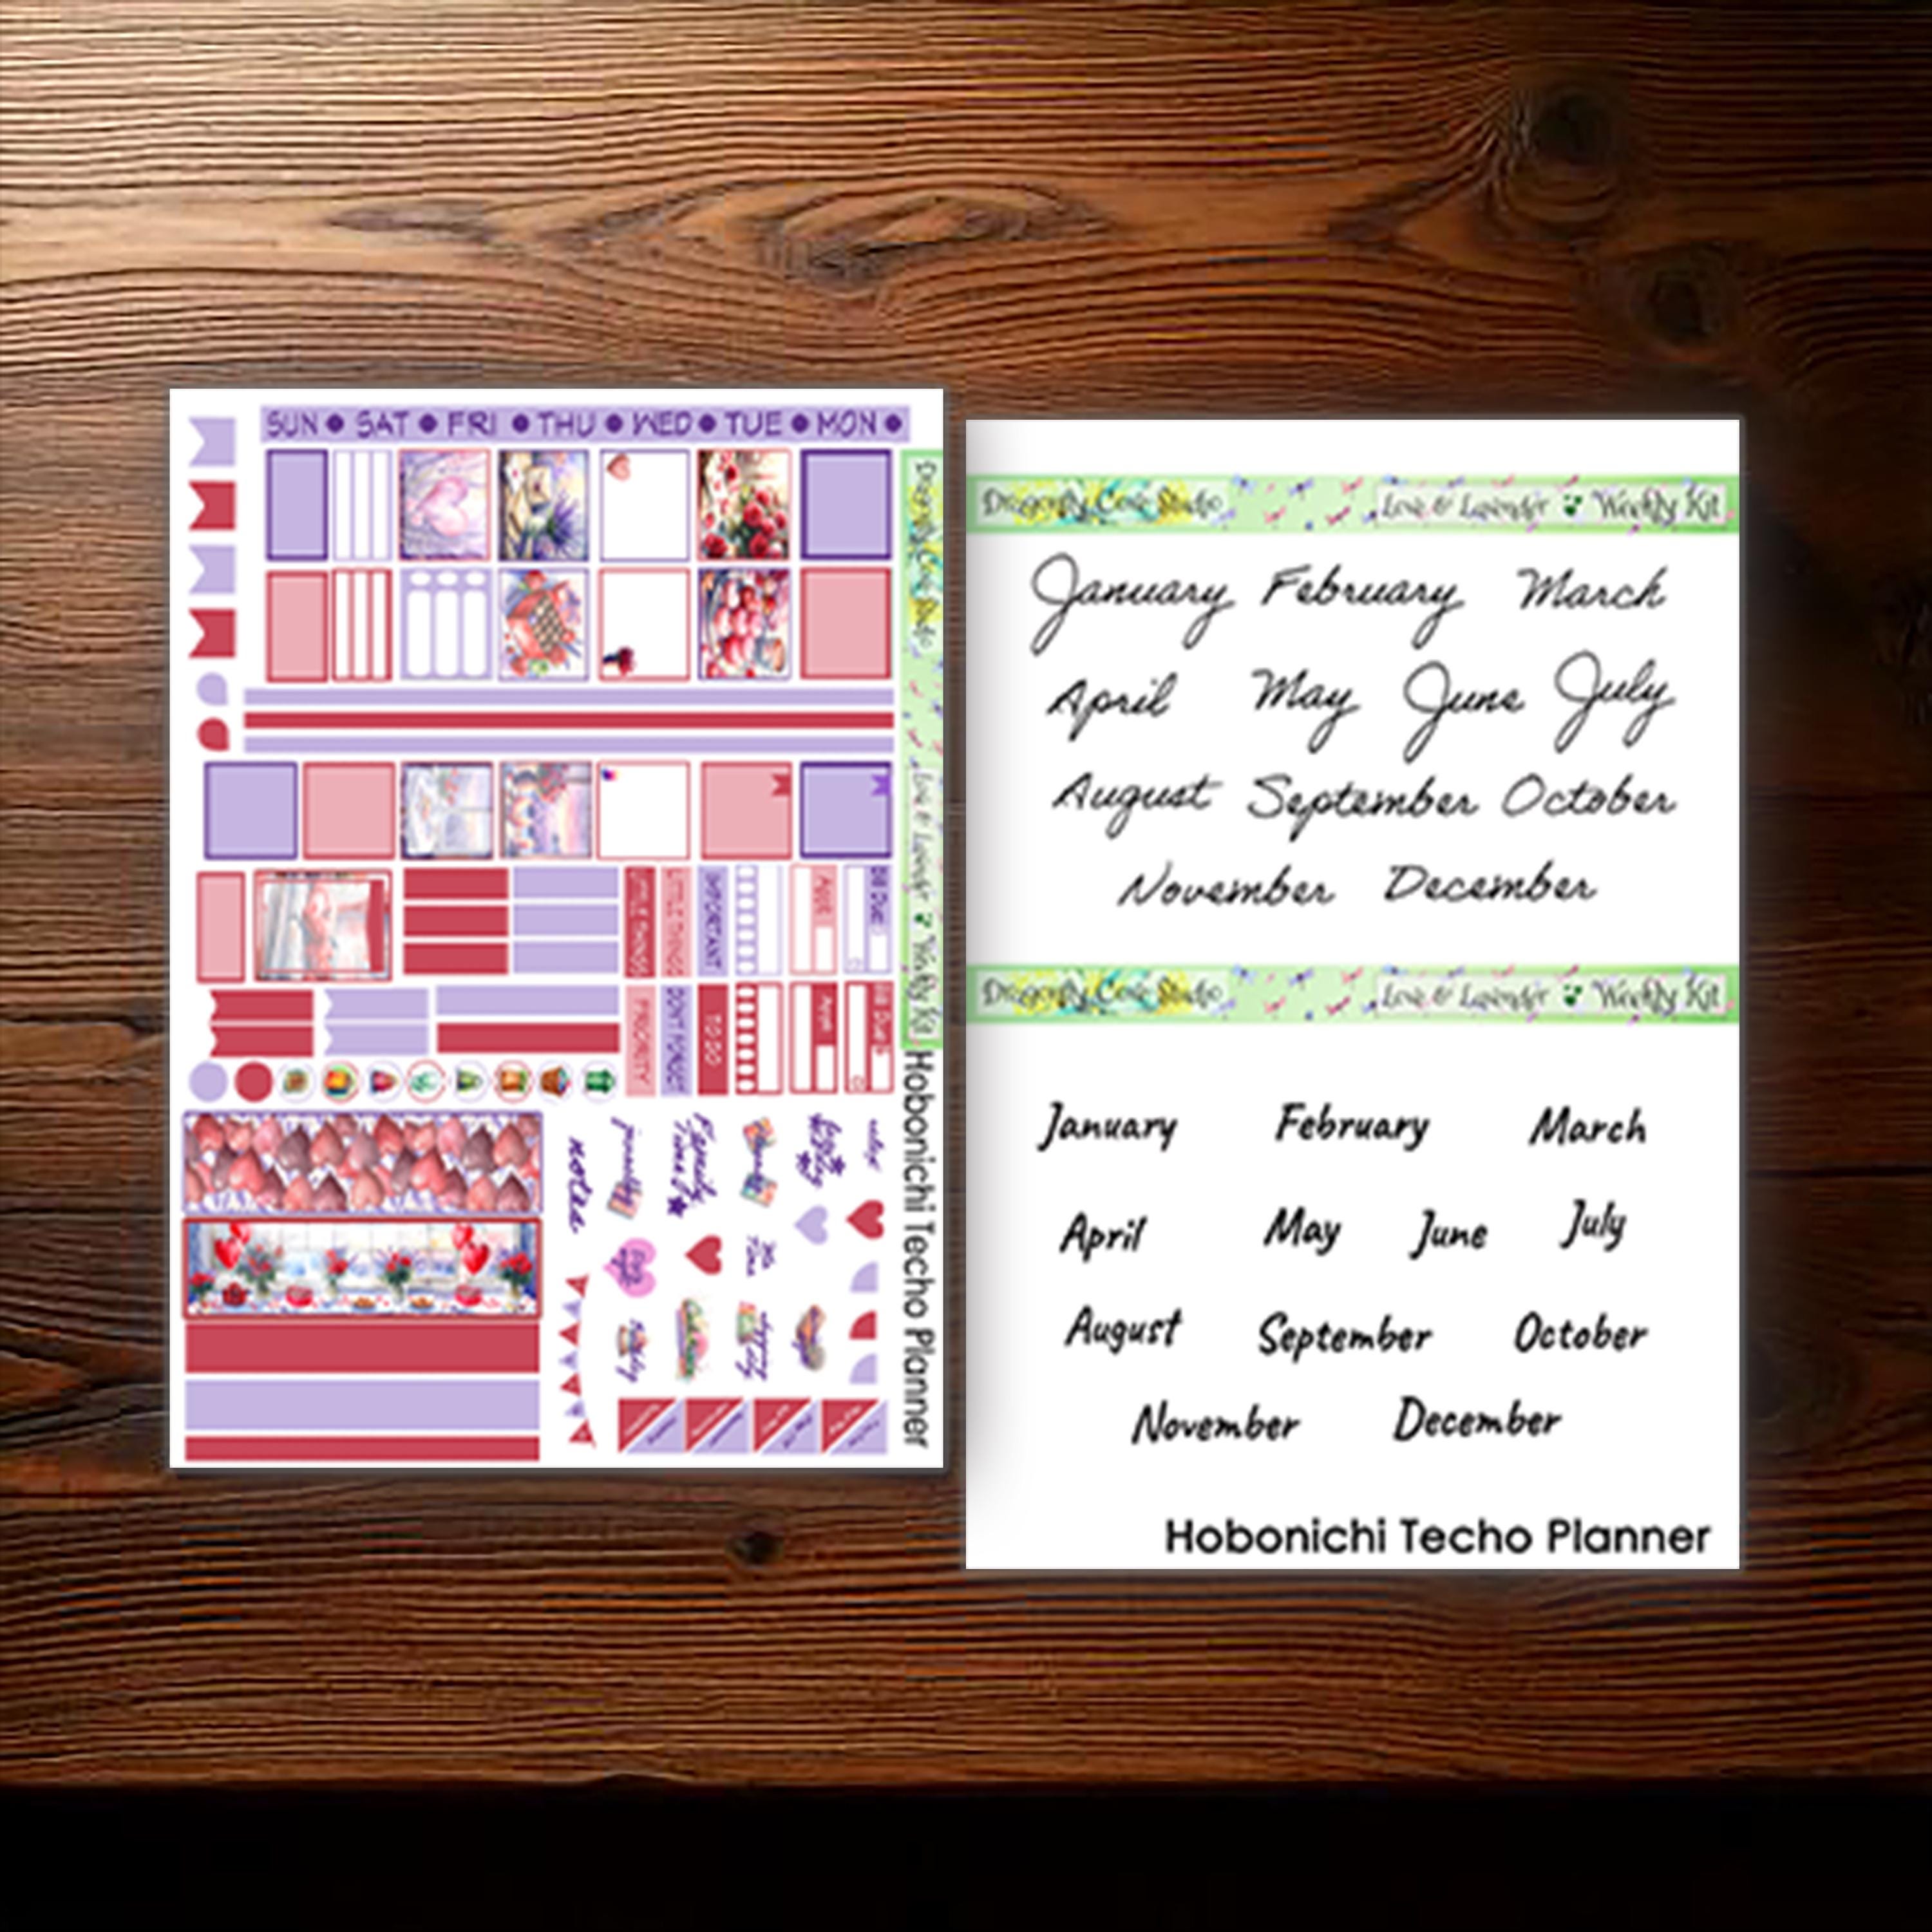 SUN • SAT • FRI • THU • WED • TUE • MON •
Dragonfly Cove Studio
Love & Lavender Weekly Kit
Hobonichi Techo Planner
LITTLE THINGS
LITTLE THINGS
IMPORTANT
Appt
Bill Due
PRIORITY
DON'T FORGET
TO DO
Appt
Bill Due
notes
Family Time
Dragonfly Cove Studio Love & Lavender Weekly Kit
January February March
April May June July
August September October
November December
Dragonfly Cove Studio Love & Lavender Weekly Kit
January February March
April May June July
August September October
November December
Hobonichi Techo Planner